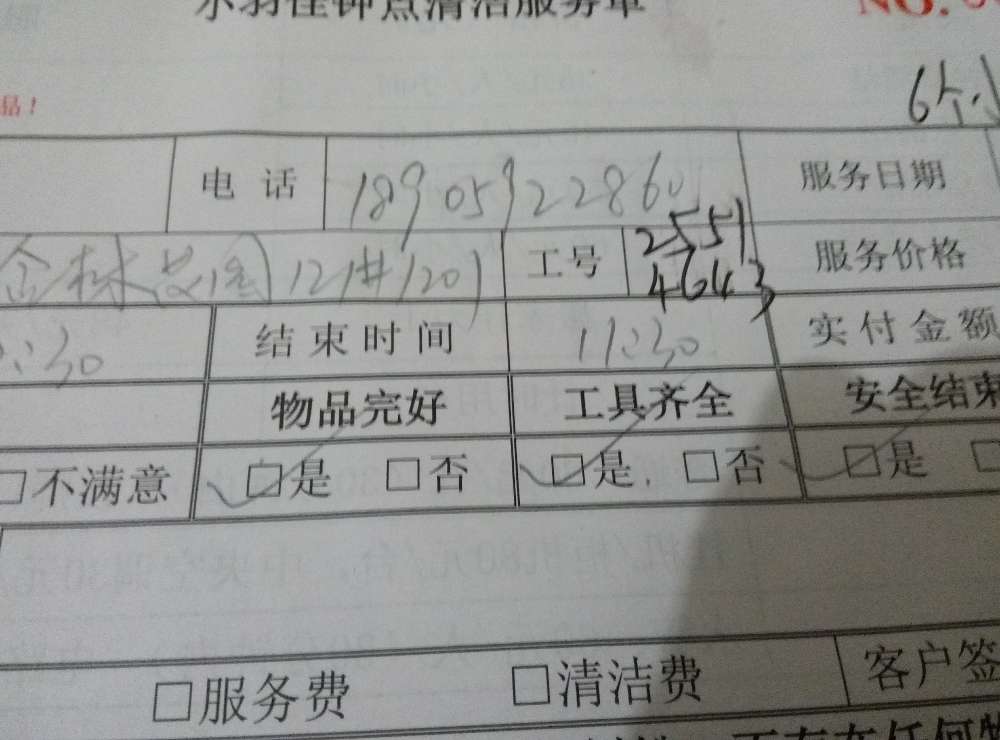 钟点清洁服务单 NO.
品！
6个小
电话 18905922860 服务日期
金林 121#1201 工号 2551 4643 服务价格
:30 结束时间 11:30 实付金额
物品完好 工具齐全 安全结束
□不满意 □是 □否 □是 □否 □是
□服务费 □清洁费 客户签